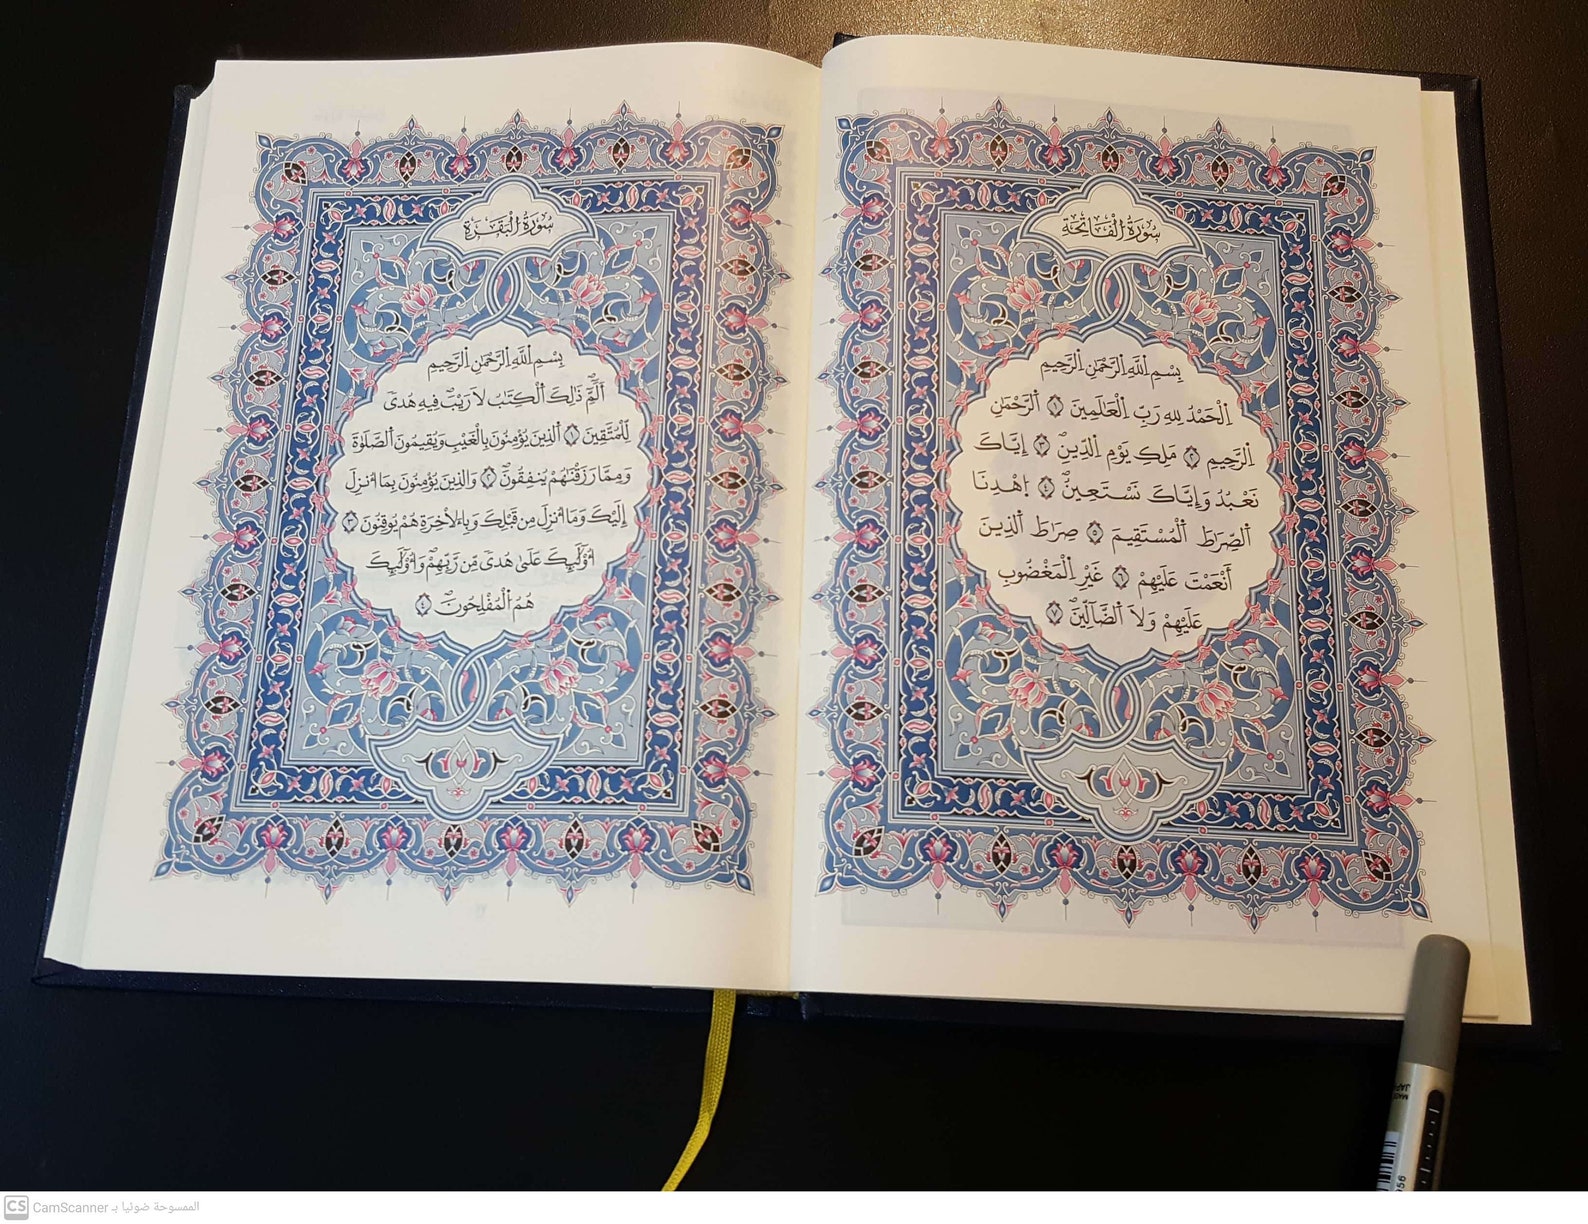 سُورَةُ الْفَاتِحَةِ
بِسْمِ اِللَّهِ اِلرَّحْمَٰنِ اِلرَّحِيمِ
اِلْحَمْدُ لِلهِ رَبِّ اِلْعَٰلَمِينَ ١ اَلرَّحْمَٰنِ
اِلرَّحِيمِ ٢ مَلِكِ يَوْمِ اِلدِّينِ ٣ إِيَّاكَ
نَعْبُدُ وَإِيَّاكَ نَسْتَعِينُ ٤ اِهْدِنَا
اَلصِّرَٰطَ اَلْمُسْتَقِيمَ ٥ صِرَٰطَ اَلذِينَ
أَنْعَمْتَ عَلَيْهِمْ ٦ غَيْرِ اِلْمَغْضُوبِ
عَلَيْهِمْ وَلَا اَلضَّآلِّينَ ٧
سُورَةُ الْبَقَرَةِ
بِسْمِ اِللَّهِ اِلرَّحْمَٰنِ اِلرَّحِيمِ
أَلَٓمِّٓ ذَٰلِكَ اَلْكِتَٰبُ لَا رَيْبَ فِيهِ هُدىً
لِّلْمُتَّقِينَ ١ اَلذِينَ يُؤْمِنُونَ بِالْغَيْبِ وَيُقِيمُونَ اَلصَّلَوٰةَ
وَمِمَّا رَزَقْنَٰهُمْ يُنفِقُونَ ٢ وَالذِينَ يُؤْمِنُونَ بِمَا أُنزِلَ
إِلَيْكَ وَمَا أُنزِلَ مِن قَبْلِكَ وَبِالَاخِرَةِ هُمْ يُوقِنُونَ ٣
أُوْلَٰٓئِكَ عَلَىٰ هُدىً مِّن رَّبِّهِمْ وَأُوْلَٰٓئِكَ
هُمُ اُلْمُفْلِحُونَ ٤
CS CamScanner الممسوحة ضوئيا بـ